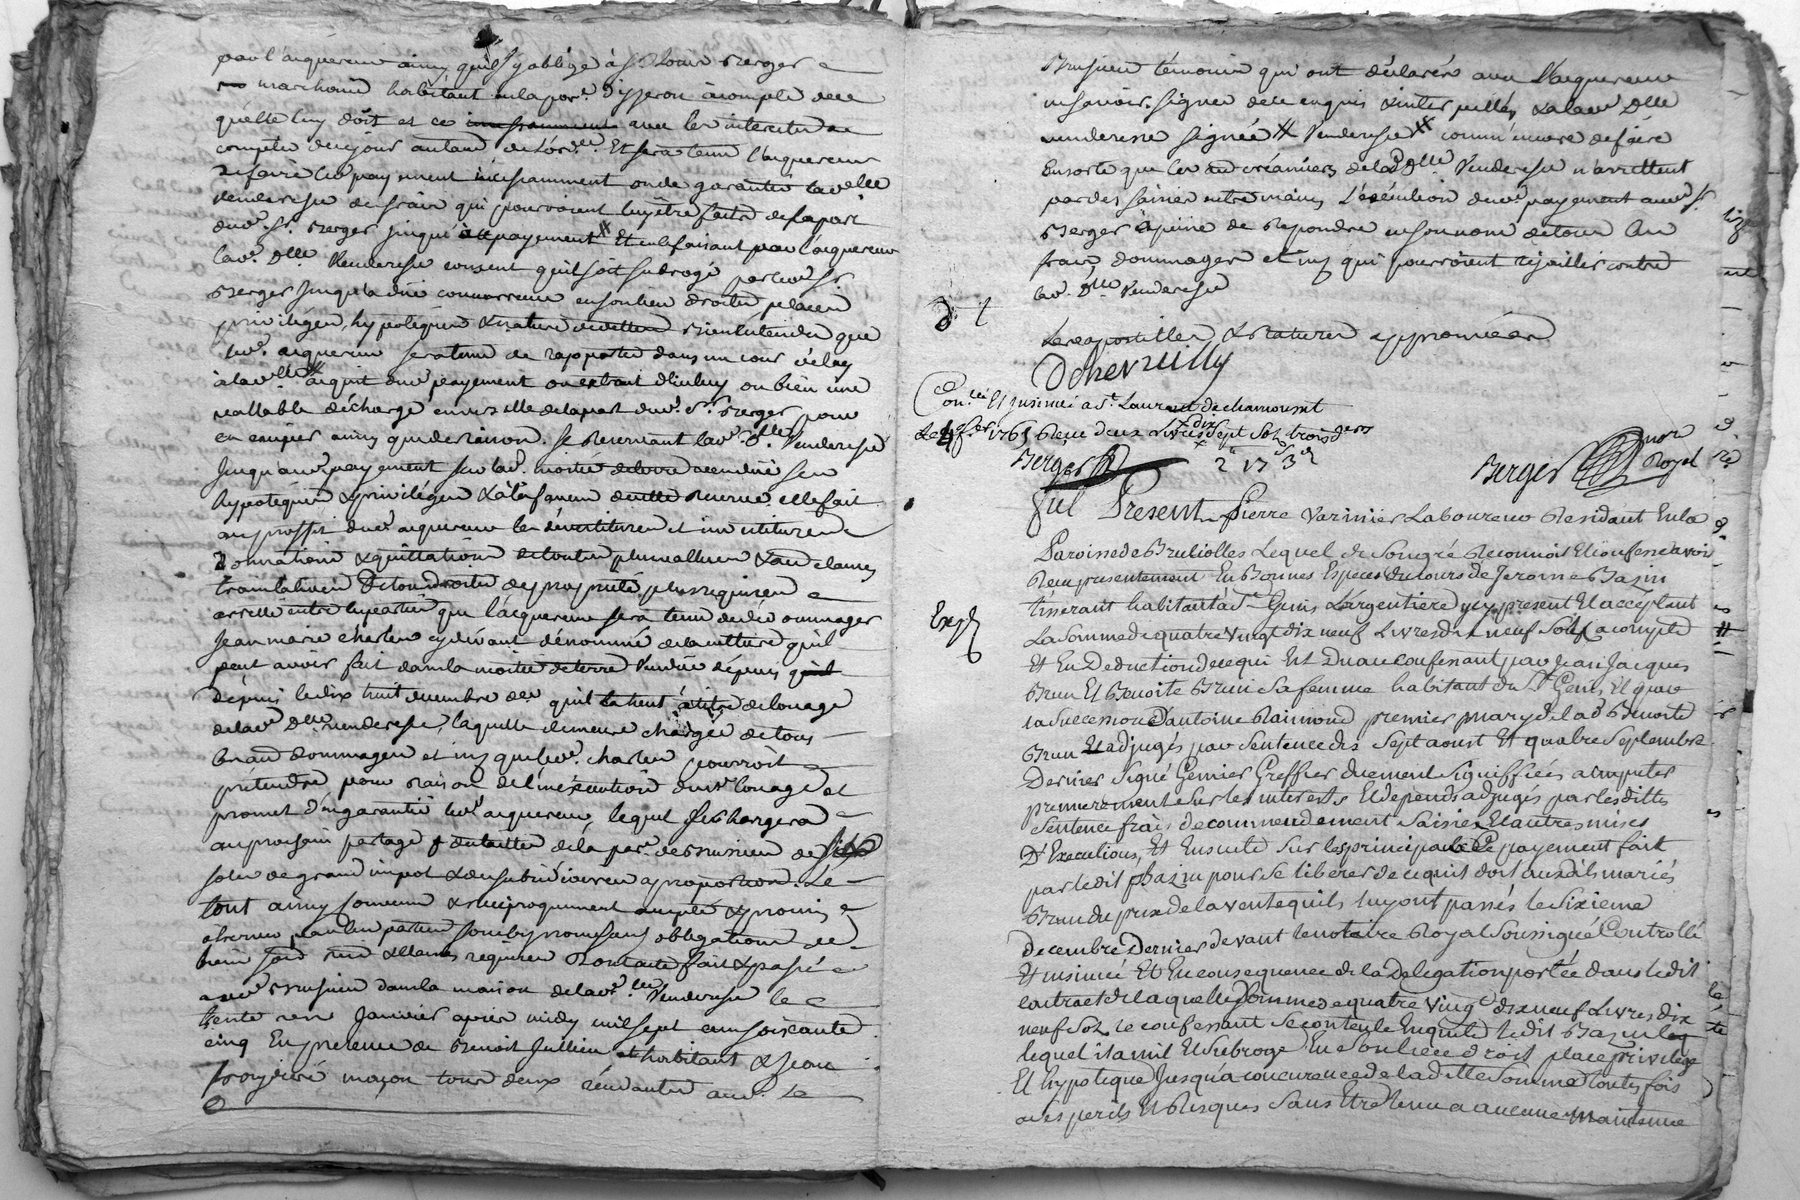 par l'acquereur ainsy qu'il s'y oblige à Sr Louis Berger
marchand habitant en la par.e d'ysseron àcompte de ce
quelle luy doit et ce avec les interets a
compter de ce jour autant de Et sera tenu l'acquereur
de faire le payement incessamment ou de garantir lad.e Dlle
venderesse de frais qui pourroient luy être faits de la part
dud. Sr. Berger jusqu'à payement Et en le faisant par l'acquereur
lad.e Dlle Venderesse consent qu'il soit subrogé par led. Sr
Berger jusqu'à due concurrence en son lieu droits places
privileges, hypoteques & nature bien entendu que
led. acquereur sera tenu de rapporter dans un court délay
à lad. Dlle acquit dud payement ou extrait d'iceluy ou bien une
vallable décharge envers elle de la part dud. Sr. Berger pour
en couper ainsy que de raison. Se Reservant lad. Dlle Venderesse
jusqu'aud. payement sur lad. moitié de terre vendue ses
hypoteques & privileges & à la faveur de cette reserve elle fait
au proffit dud acquereur les devetitures et invetitures
Donnations & quittations de toutes plus vallues & aux clauses
translatives De tous droits de proprieté plus requises
arretté entre les parties que l'acquereur sera tenu de dédommager
Jean marie charles cy devant dénommé de la culture qu'il
peut avoir fait dans la moitié de terre Vendue depuis
depuis le dix huit decembre der qu'il la tient à titre de louage
de lad.e Dlle venderesse, laquelle demeure chargée de tous
dommages et que led. charles pourroit
prétendre pour raison de l'inéxécution dud. louage et
promet d'en garantir led acquereur, lequel se chargera
au prochain partage & de la taille de la par. de Brussieu de six
sols de grand impot & de subsidiaires a proportion. Le
tout ainsy convenu & reciproquement accepté & promis
observer par les parties sous les promesses obligations de
biens & clauses requises Dont acte fait & passé
aud Brussieu dans la maison de lad. Dlle Venderesse le
trente un Janvier après midy mil sept cens soixante
cinq En presence de Benoit Jullien habitant & Jean
maçon tous deux residants aud. Le
Brusieu témoins qui ont déclarés avec l'acquereur
ne savoir signer de ce enquis & interpellés, & a lad Dlle
venderesse signée # Venderesse # comm'encore de faire
Ensorte que les créanciers de lad Dlle Venderesse n'arrettent
par des saisies entre mains l'exécution dud payement aud. Sr.
Berger à peine de Repondre en son nom de tous les
frais, dommages et qui pourroient réjaillir contre
lad. Dlle Venderesse
Les apostilles & Ratures approuvées
Dchevzeilly
Con.lé Et insinué a St Laurent de chamousset
Le 1765 Reçu deux Livres dix sept Sols trois d.ers
Berger 2# 17s 3d
Berger no.re Royal
Fut Present Pierre Varinier Laboureur Residant En la
Paroisse de Brullioles Lequel de Son gré Reconnoit Et confesse avoir
Reçu presentement En Bonnes Especes du cours de Jerome Bazin
tisserant habitant à St Genis L'argentiere icy present Et acceptant
Exp
La Somme de quatre Vingt dix neuf Livres dix neuf Sols a compte
Et En Deduction de ce qui Est Du au confessant par Jean Jacques
Brun Et Benoite Brun Sa femme habitant du d St Genis, Et par
la Succession d'antoine Raimond premier mary de lad Benoite
Brun Et adjugés par Sentence des Sept aoust Et quatre Septembre
Dernier Signé Gemier Greffier duement Signiffiées a imputer
premierement Sur les interests Et depends adjugés par les dittes
Sentence frais de commendement Saisies Et autres mises
D'Executions, Et Ensuite Sur les principale Ce payement fait
par le dit Bazin pour Se liberer de ce qu'il doit aux dits mariés
Brun du prix de la vente qu'ils luy ont passés le Sixieme
decembre Dernier devant le notaire Royal Soussigné Controllé
Et insinué Et En consequence de la Delegation portée dans le dit
contract de laquelle Somme de quatre Vingt dix neuf Livres dix
neuf Sols le confessant Se contente En quitte le dit Bazin
lequel il a mit Et Subroge En Son lieu droit place privilege
Et hypoteque Jusqu'a concurence de la ditte Somme toutes fois
a Ses perils Et Risques Sans Etre tenu a aucune maintenue